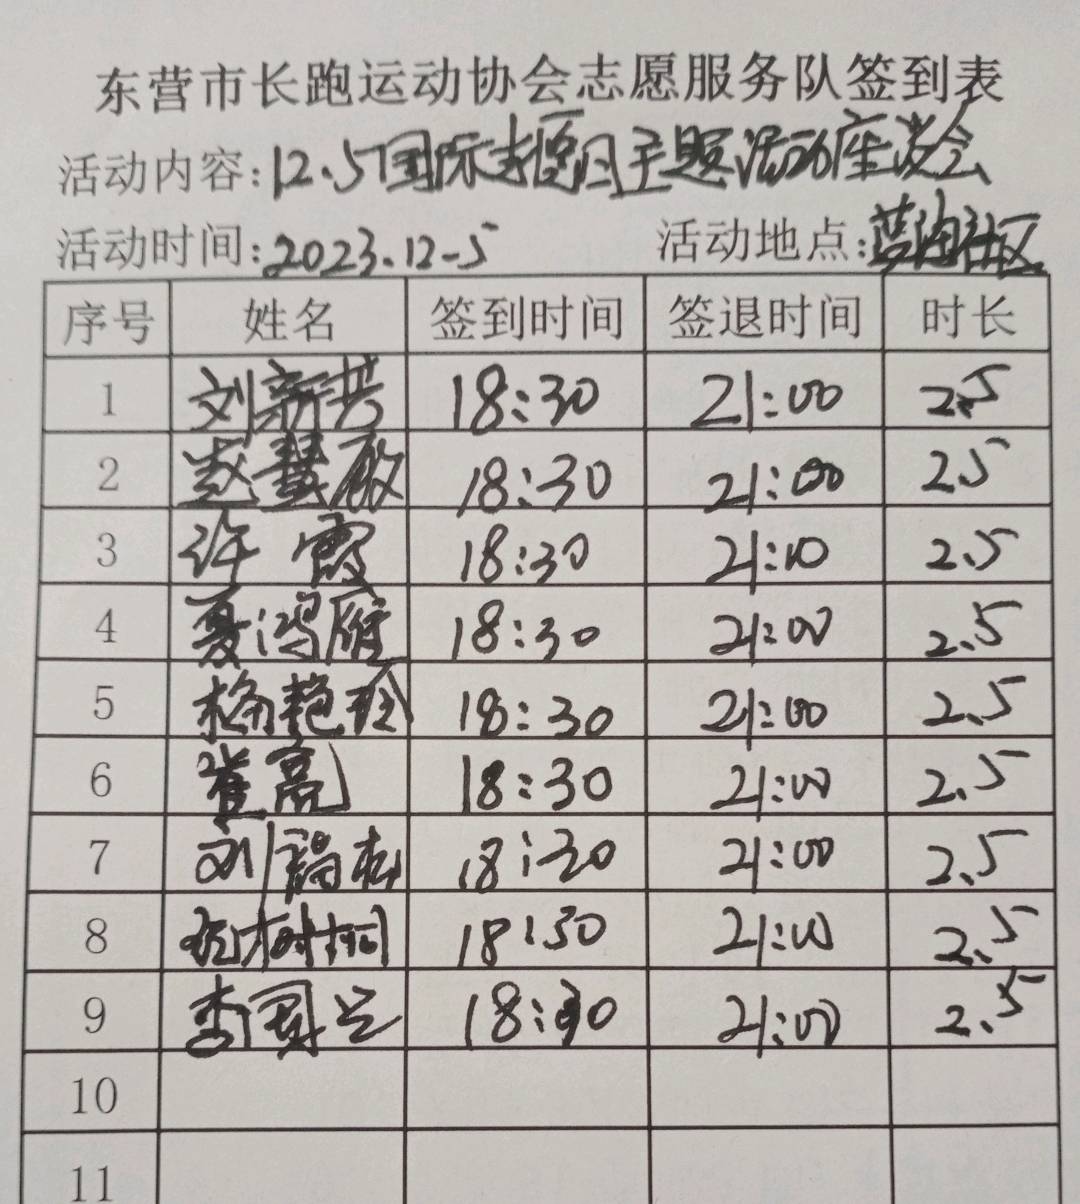 东营市长跑运动协会志愿服务队签到表
活动内容:12.5国际志愿日主题活动座谈会
活动时间:2023.12-5 活动地点:社区
序号 姓名 签到时间 签退时间 时长
1 刘新芳 18:30 21:00 2.5
2 赵慧敏 18:30 21:00 2.5
3 许霞 18:30 21:00 2.5
4 聂鸿雁 18:30 21:00 2.5
5 梅艳玲 18:30 21:00 2.5
6 崔亮 18:30 21:00 2.5
7 刘 18:30 21:00 2.5
8 18:30 21:00 2.5
9 李国 18:30 21:00 2.5
10
11